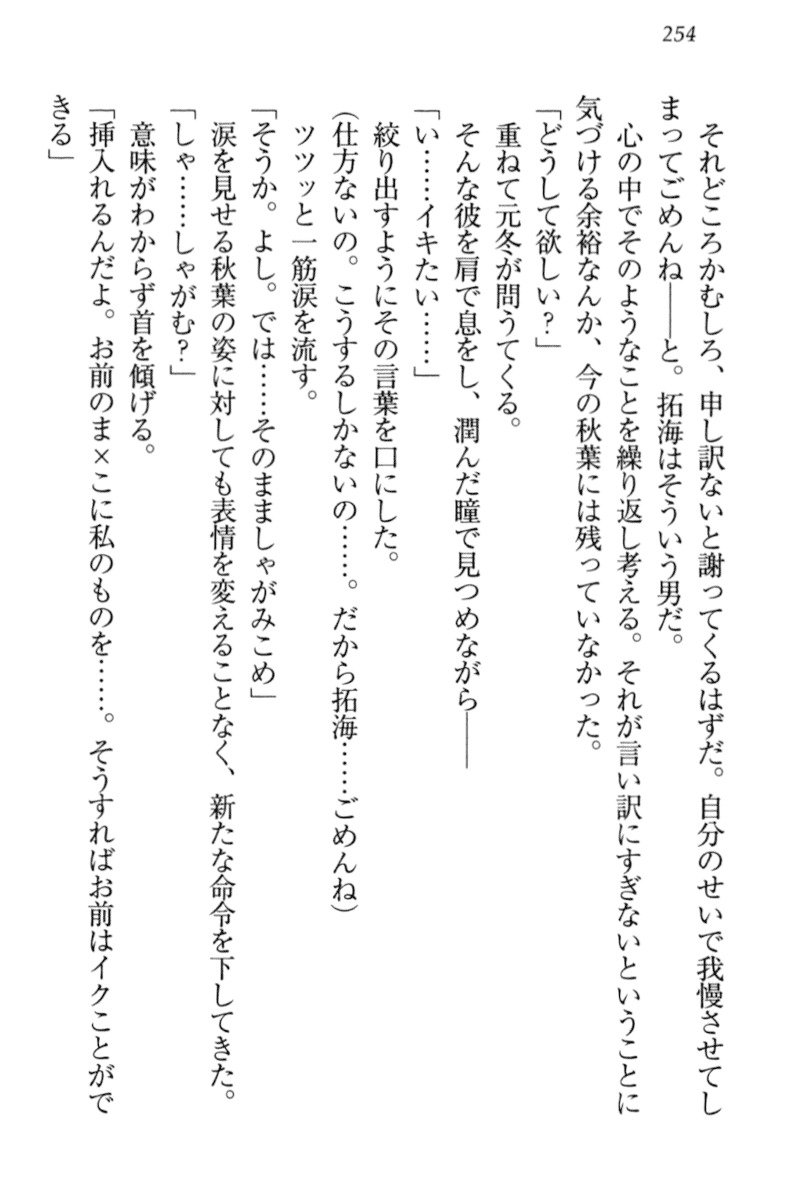 254
それどころかむしろ、申し訳ないと謝ってくるはずだ。自分のせいで我慢させてし
まってごめんね――と。拓海はそういう男だ。
心の中でそのようなことを繰り返し考える。それが言い訳にすぎないということに
気づける余裕なんか、今の秋葉には残っていなかった。
「どうして欲しい？」
重ねて元冬が問うてくる。
そんな彼を肩で息をし、潤んだ瞳で見つめながら――
「い……イキたい……」
絞り出すようにその言葉を口にした。
（仕方ないの。こうするしかないの……。だから拓海……ごめんね）
ツツッと一筋涙を流す。
「そうか。よし。では……そのまましゃがみこめ」
涙を見せる秋葉の姿に対しても表情を変えることなく、新たな命令を下してきた。
「しゃ……しゃがむ？」
意味がわからず首を傾げる。
「挿入れるんだよ。お前のま×こに私のものを……。そうすればお前はイクことがで
きる」